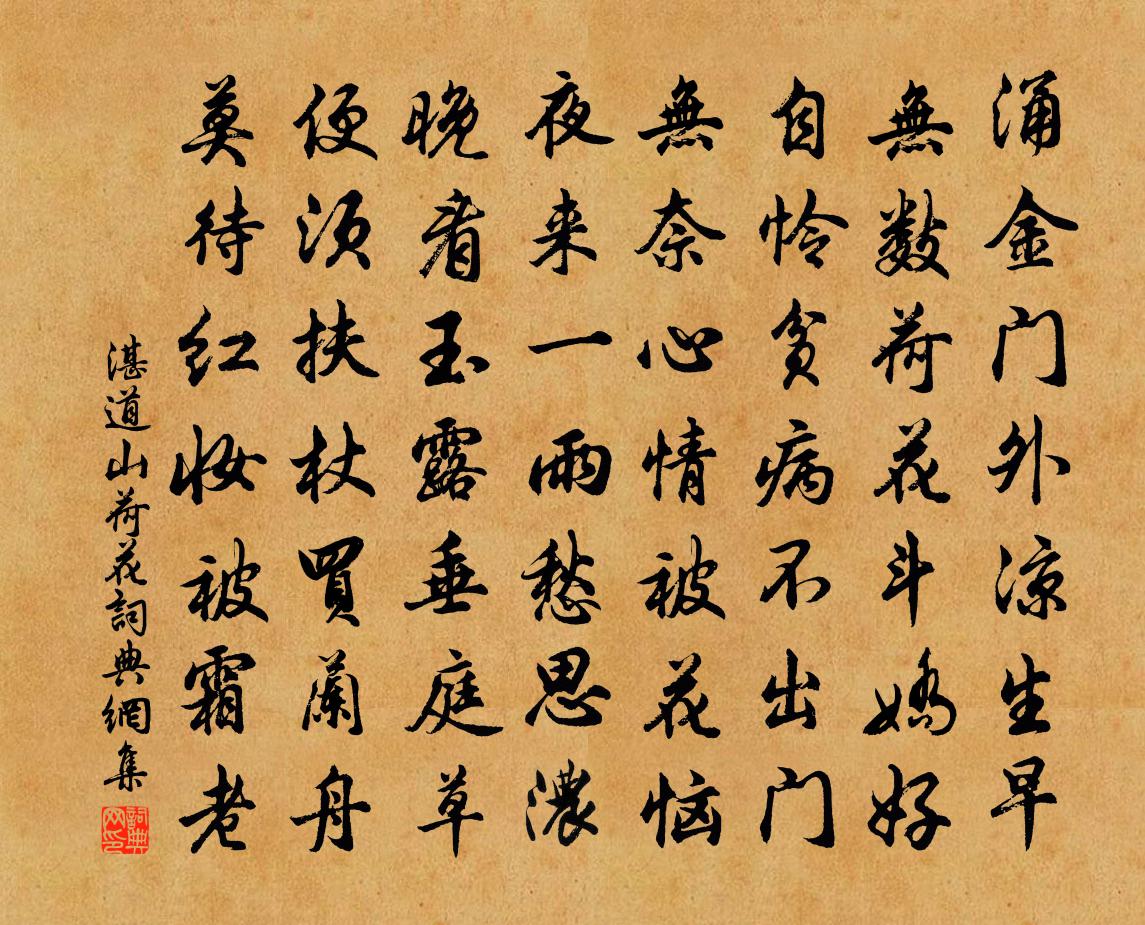 涌金门外凉生早
無數荷花斗嬌好
自怜贫病不出门
無奈心情被花恼
夜来一雨愁思濃
晚看玉露垂庭草
便须扶杖買蘭舟
莫待红妆被霜老
湛道山荷花詞典網集
詞典
网印